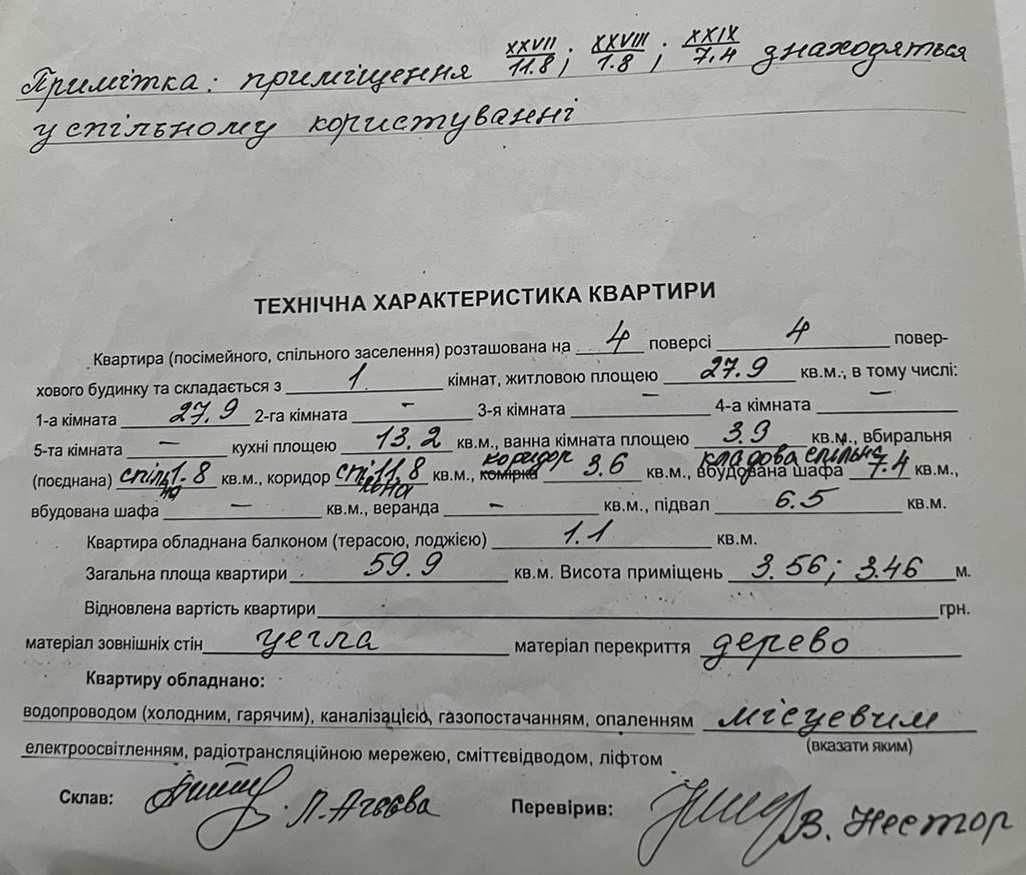 Примітка: приміщення XXVII/11.8; XXVIII/1.8; XXIX/7.4 знаходяться
у спільному користуванні
ТЕХНІЧНА ХАРАКТЕРИСТИКА КВАРТИРИ
Квартира (посімейного, спільного заселення) розташована на 4 поверсі 4 повер-
хового будинку та складається з 1 кімнат, житловою площею 27.9 кв.м., в тому числі:
1-а кімната 27.9 2-га кімната - 3-я кімната - 4-а кімната -
5-та кімната - кухні площею 13.2 кв.м., ванна кімната площею 3.9 кв.м., вбиральня
(поєднана) спільна 1.8 кв.м., коридор спільна 11.8 кв.м., комірка коридор 3.6 кв.м., вбудована шафа кладова спільна 7.4 кв.м.,
вбудована шафа - кв.м., веранда - кв.м., підвал 6.5 кв.м.
Квартира обладнана балконом (терасою, лоджією) 1.1 кв.м.
Загальна площа квартири 59.9 кв.м. Висота приміщень 3.56; 3.46 м.
Відновлена вартість квартири грн.
матеріал зовнішніх стін цегла матеріал перекриття дерево
Квартиру обладнано:
водопроводом (холодним, гарячим), каналізацією, газопостачанням, опаленням місцевим
(вказати яким)
електроосвітленням, радіотрансляційною мережею, сміттєвідводом, ліфтом
Склав: Л. Агєєва Перевірив: В. Нестор